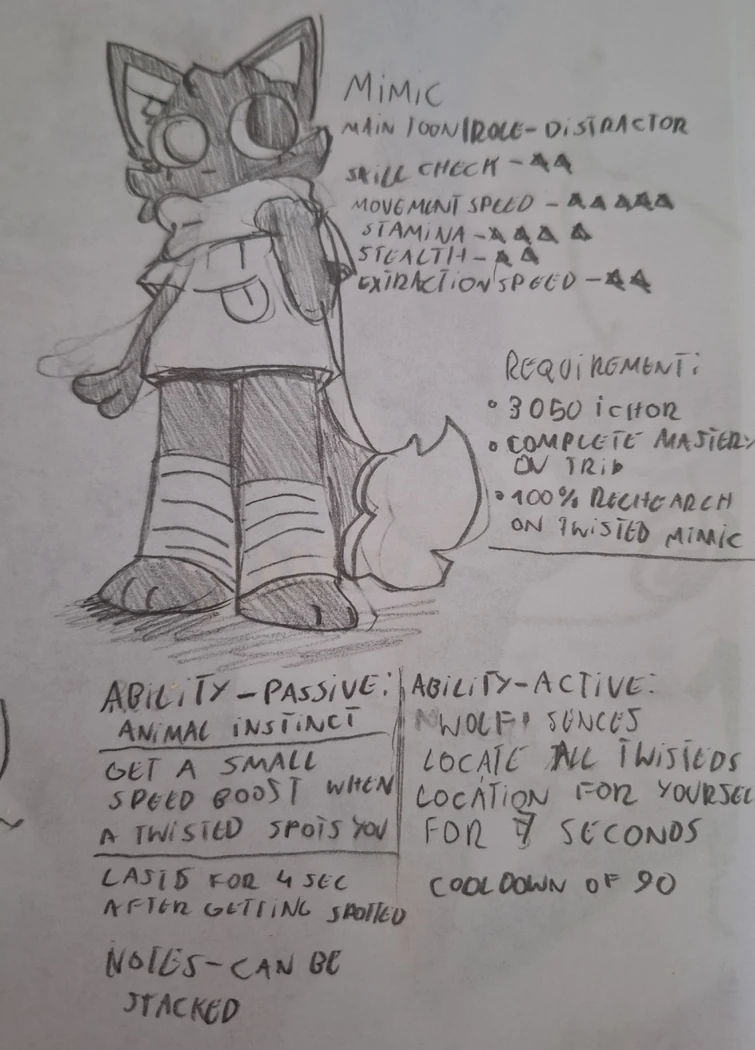 MIMIC
MAIN TOON/ROLE- DISTRACTOR
SKILL CHECK - ★★
MOVEMENT SPEED - ★★★★★
STAMINA - ★★★★
STEALTH - ★★
EXTRACTION SPEED - ★★
REQUIREMENT:
• 3050 ICHOR
• COMPLETE MASTERY
ON TRIP
• 100% RECHEARCH
ON TWISTED MIMIC
ABILITY - PASSIVE:
ANIMAL INSTINCT
GET A SMALL
SPEED BOOST WHEN
A TWISTED SPOTS YOU
LASTS FOR 4 SEC
AFTER GETTING SPOTTED
NOTES - CAN BE
STACKED
ABILITY - ACTIVE:
WOLF SENCES
LOCATE ALL TWISTEDS
LOCATION FOR YOURSEL
FOR 7 SECONDS
COOLDOWN OF 90